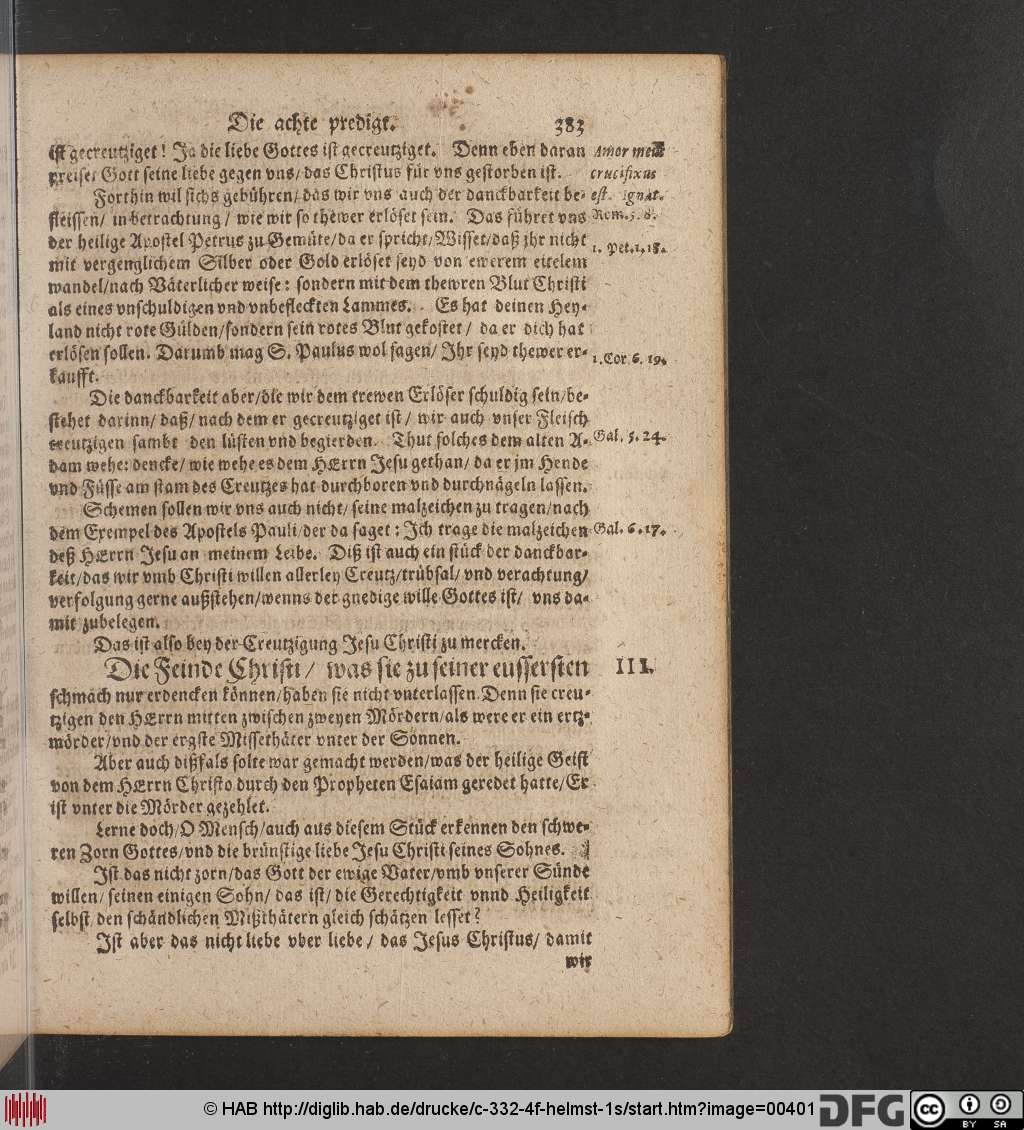 Die achte predigt. 383
ist gecreutziget! Ja die liebe Gottes ist gecreutziget. Denn eben daran
preiset Gott seine liebe gegen vns/ das Christus für vns gestorben ist.
Forthin wil sichs gebühren/ das wir vns auch der danckbarkeit be-
fleissen/ in betrachtung/ wie wir so thewer erlöset sein. Das führet vns
der heilige Apostel Petrus zu Gemüte/da er spricht/Wisset/daß jhr nicht
mit vergenglichem Silber oder Gold erlöset seyd von ewerem eitelem
wandel/nach Väterlicher weise: sondern mit dem thewren Blut Christi
als eines vnschuldigen vnd vnbefleckten Lammes. Es hat deinen Hey-
land nicht rote Gülden/sondern sein rotes Blut gekostet/ da er dich hat
erlösen sollen. Darumb mag S. Paulus wol sagen/ Jhr seyd thewer er-
kaufft.
Die danckbarkeit aber/die wir dem trewen Erlöser schuldig sein/be-
stehet darinn/ daß/ nach dem er gecreutziget ist/ wir auch vnser Fleisch
creutzigen sambt den lüsten vnd begierden. Thut solches dem alten A-
dam wehe: dencke/ wie wehe es dem HErrn Jesu gethan/ da er jm Hende
vnd Füsse am stam des Creutzes hat durchboren vnd durchnägeln lassen.
Schemen sollen wir vns auch nicht/ seine malzeichen zu tragen/nach
dem Exempel des Apostels Pauli/der da saget: Jch trage die malzeichen
deß HErrn Jesu an meinem Leibe. Diß ist auch ein stück der danckbar-
keit/das wir vmb Christi willen allerley Creutz/trübsal/ vnd verachtung/
verfolgung gerne außstehen/wenns der gnedige wille Gottes ist/ vns da-
mit zubelegen.
Das ist also bey der Creutzigung Jesu Christi zu mercken.
Die Feinde Christi/ was sie zu seiner eussersten
schmach nur erdencken können/haben sie nicht vnterlassen. Denn sie creu-
tzigen den HErrn mitten zwischen zweyen Mördern/als were er ein ertz-
mörder/vnd der ergste Missethäter vnter der Sonnen.
Aber auch dißfals solte war gemacht werden/was der heilige Geist
von dem HErrn Christo durch den Propheten Esaiam geredet hatte/Er
ist vnter die Mörder gezehlet.
Lerne doch/O Mensch/auch aus diesem Stück erkennen den schwe-
ren Zorn Gottes/vnd die brünstige liebe Jesu Christi seines Sohnes.
Jst das nicht zorn/das Gott der ewige Vater/vmb vnserer Sünde
willen/seinen einigen Sohn/ das ist/ die Gerechtigkeit vnnd Heiligkeit
selbst den schändlichen Mißthätern gleich schätzen lesset?
Jst aber das nicht liebe vber liebe/ das Jesus Christus/ damit
wir
Amor meus
crucifixus
est. ignat.
Rom. 5. 8.
1. Pet. 1, 18.
1. Cor 6. 19.
Gal. 5. 24.
Gal. 6. 17.
III.
© HAB http://diglib.hab.de/drucke/c-332-4f-helmst-1s/start.htm?image=00401
DFG
cc
BY SA